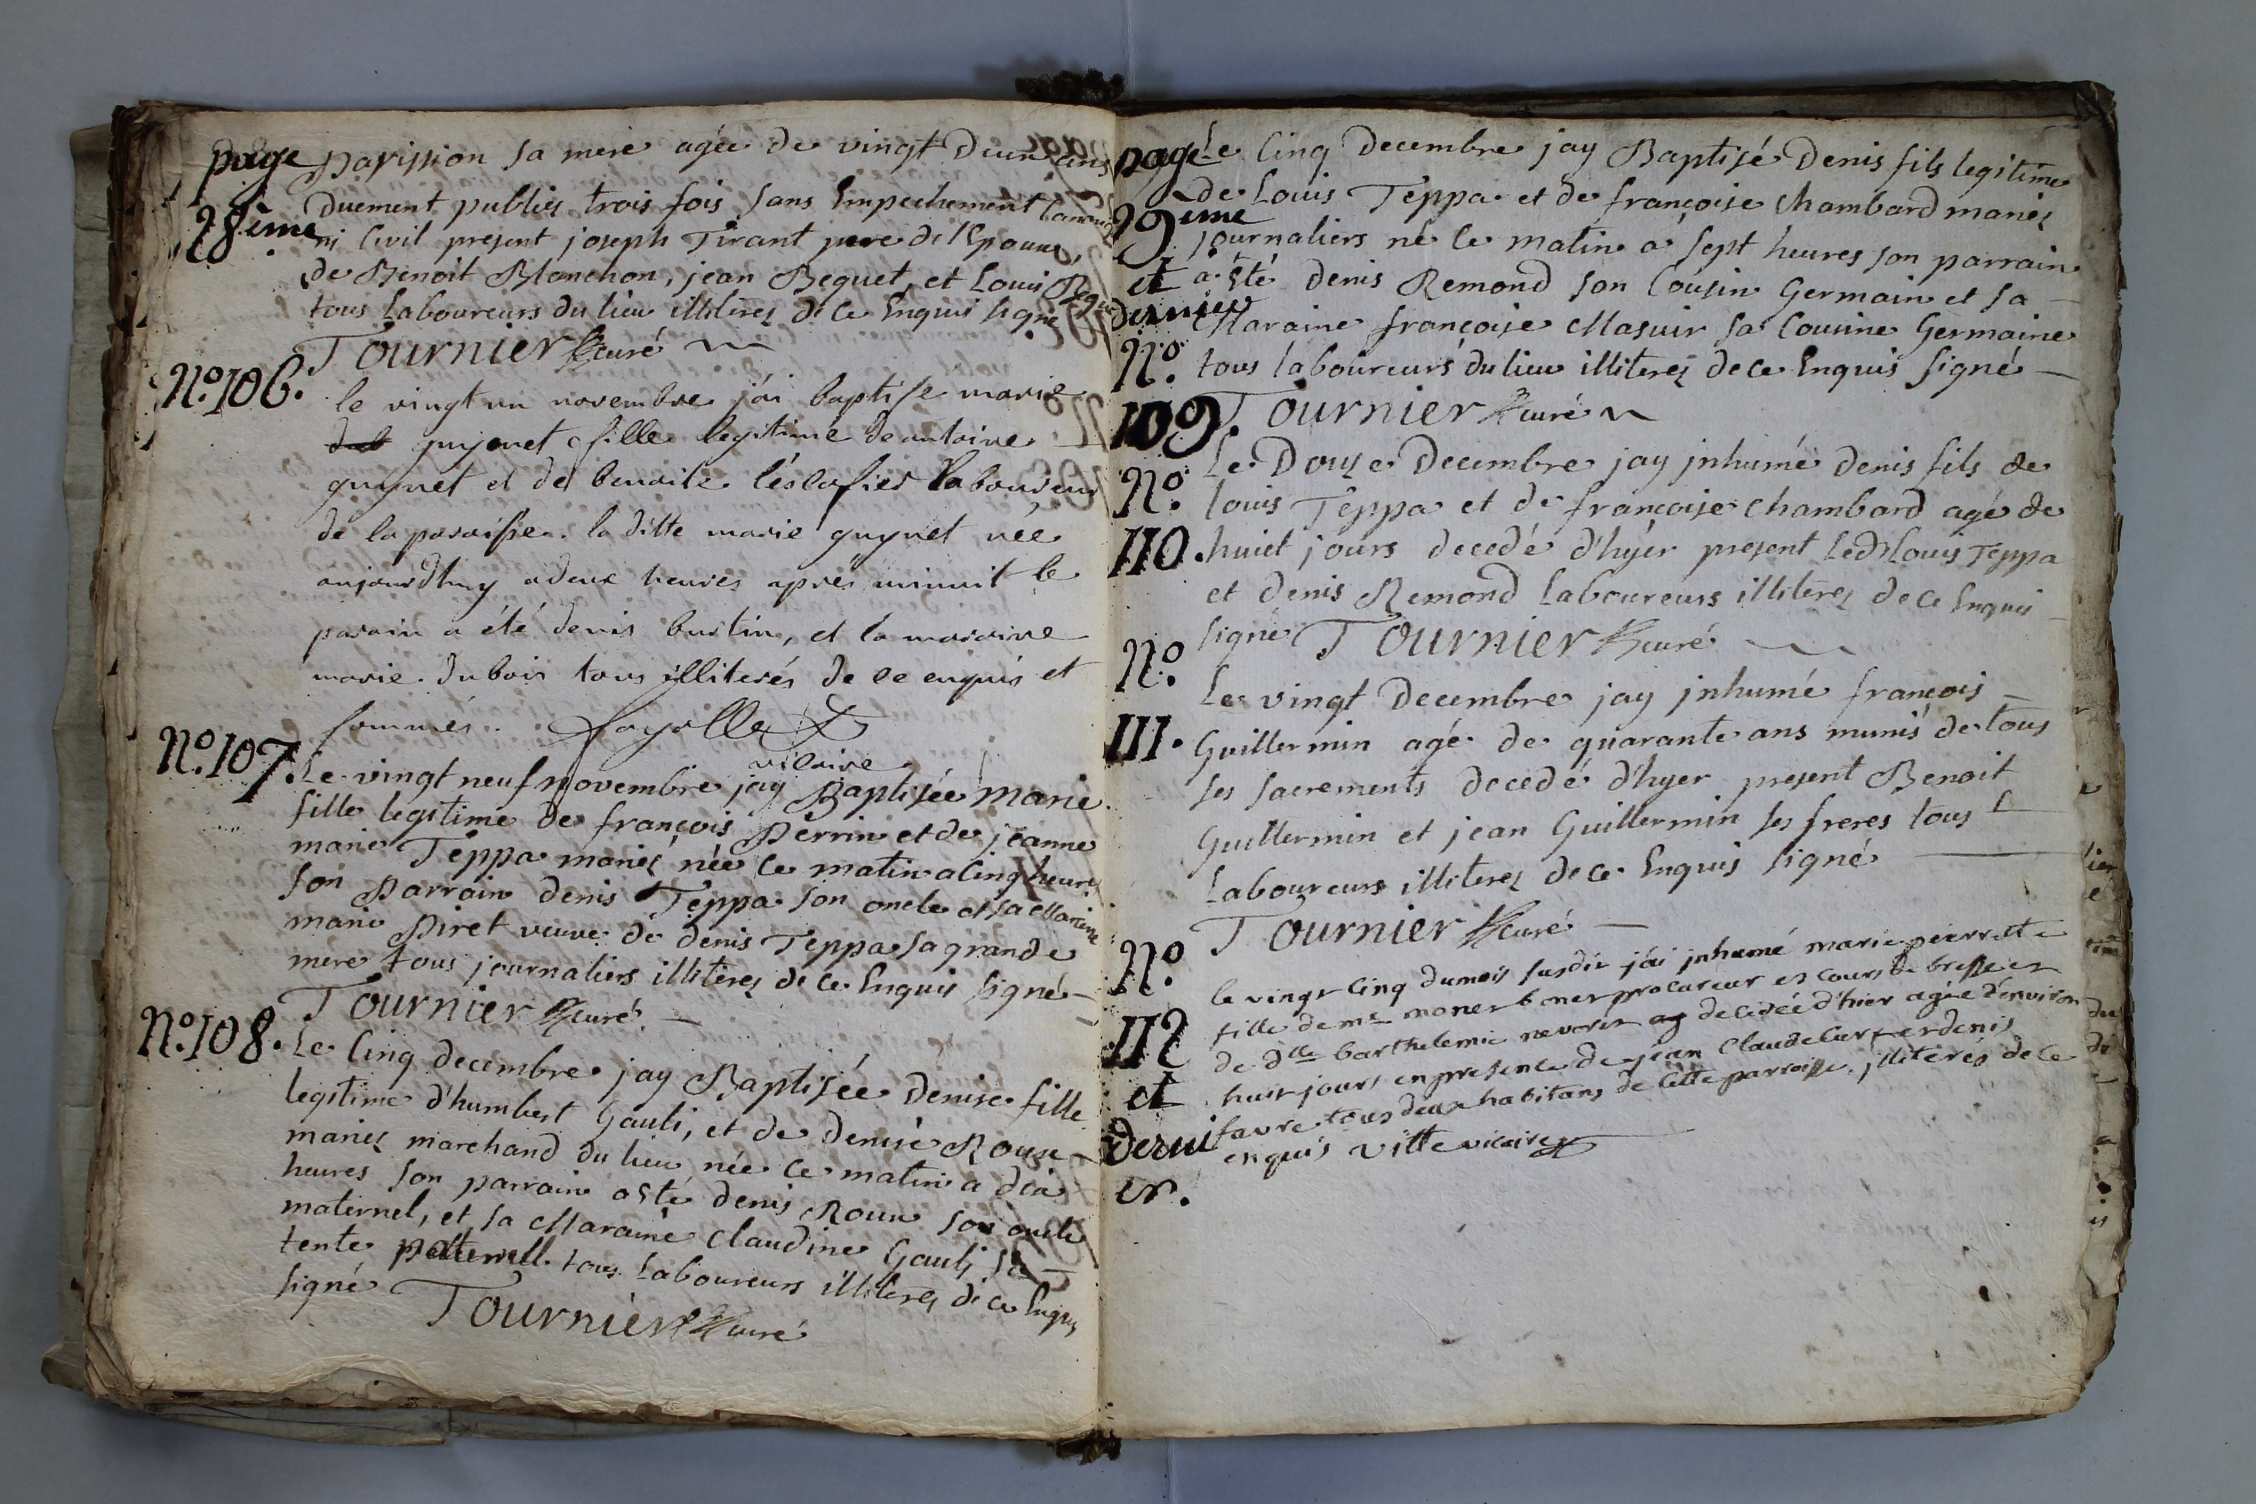 page
28ème
parission sa mere agée de vingt deux ans
duement publiés trois fois sans Empechement Canoniq
ni Civil present joseph Tirant pere de l'Epoux,
de Benoit Blanchon, jean Bequet, et Louis
tous Laboureurs du lieu illiterez de ce Enquis signé
Tournier curé
No. 106.
le vingt un novembre j'ai baptisé marie
guyonet fille legitime de antoine
guynet et de benoite laboureur
de la paroisse. la ditte marie guynet née
aujourdhuy a deux heures apres minuit le
parain a été denis burtin, et la maraine
marie. dubois tous illiterés de ce enquis et
sommés. fayolle
vicaire
No. 107.
Le vingt neuf novembre jay Baptisée marie
fille legitime de françois Perrin et de jeanne
marie Teppa mariez née ce matin a cinq heures
son Parrain denis Teppa son oncle et sa Maraine
marie Piret veuve de denis Teppa sa grande
mere tous journaliers illiterez de ce Enquis signé
Tournier curé
No. 108.
Le Cinq decembre jay Baptisée denise fille
legitime d'humbert Gauli, et de denise Roux
mariez marchand du lieu née ce matin a dix
heures son parrain a sté denis Roux son oncle
maternel, et sa Maraine Claudine Gauli sa
tente paternell tous Laboureurs illiterez de ce Enquis
signé Tournier curé
page
29ème
et
dernier
No.
109.
Le Cinq decembre jay Baptisé denis fils legitime
de Louis Teppa et de françoise Chambard mariez
journaliers né ce matin a sept heures son parrain
a sté denis Remond son Cousin Germain et sa
Maraine françoise Masuir sa Cousine Germaine
tous laboureurs du lieu illiterez de ce Enquis signé
Tournier curé
No.
110.
Le Douze decembre jay inhumé denis fils de
louis Teppa et de françoise Chambard agé de
huict jours decedé d'hyer present led. Louis Teppa
et denis Remond Laboureurs illiterez de ce Enquis
signé Tournier curé
No.
111.
Le vingt decembre jay inhumé françois
Guillermin agé de quarante ans munis de tous
ses sacrements decedé d'hyer present Benoit
Guillermin et jean Guillermin ses freres tous
Laboureurs illiterez de ce Enquis signé
Tournier curé
No.
112
et
derni
er.
le vingt cinq du mois susdit j'ai inhumé marie pierrette
fille de me. monet procureur es cours de bresse et
de dlle barthelemie decedée d'hier agée d'environ
huit jours en presence de jean Claude et denis
favre tous deux habitans de cette parroisse. illiterés de ce
enquis vitte vicaire